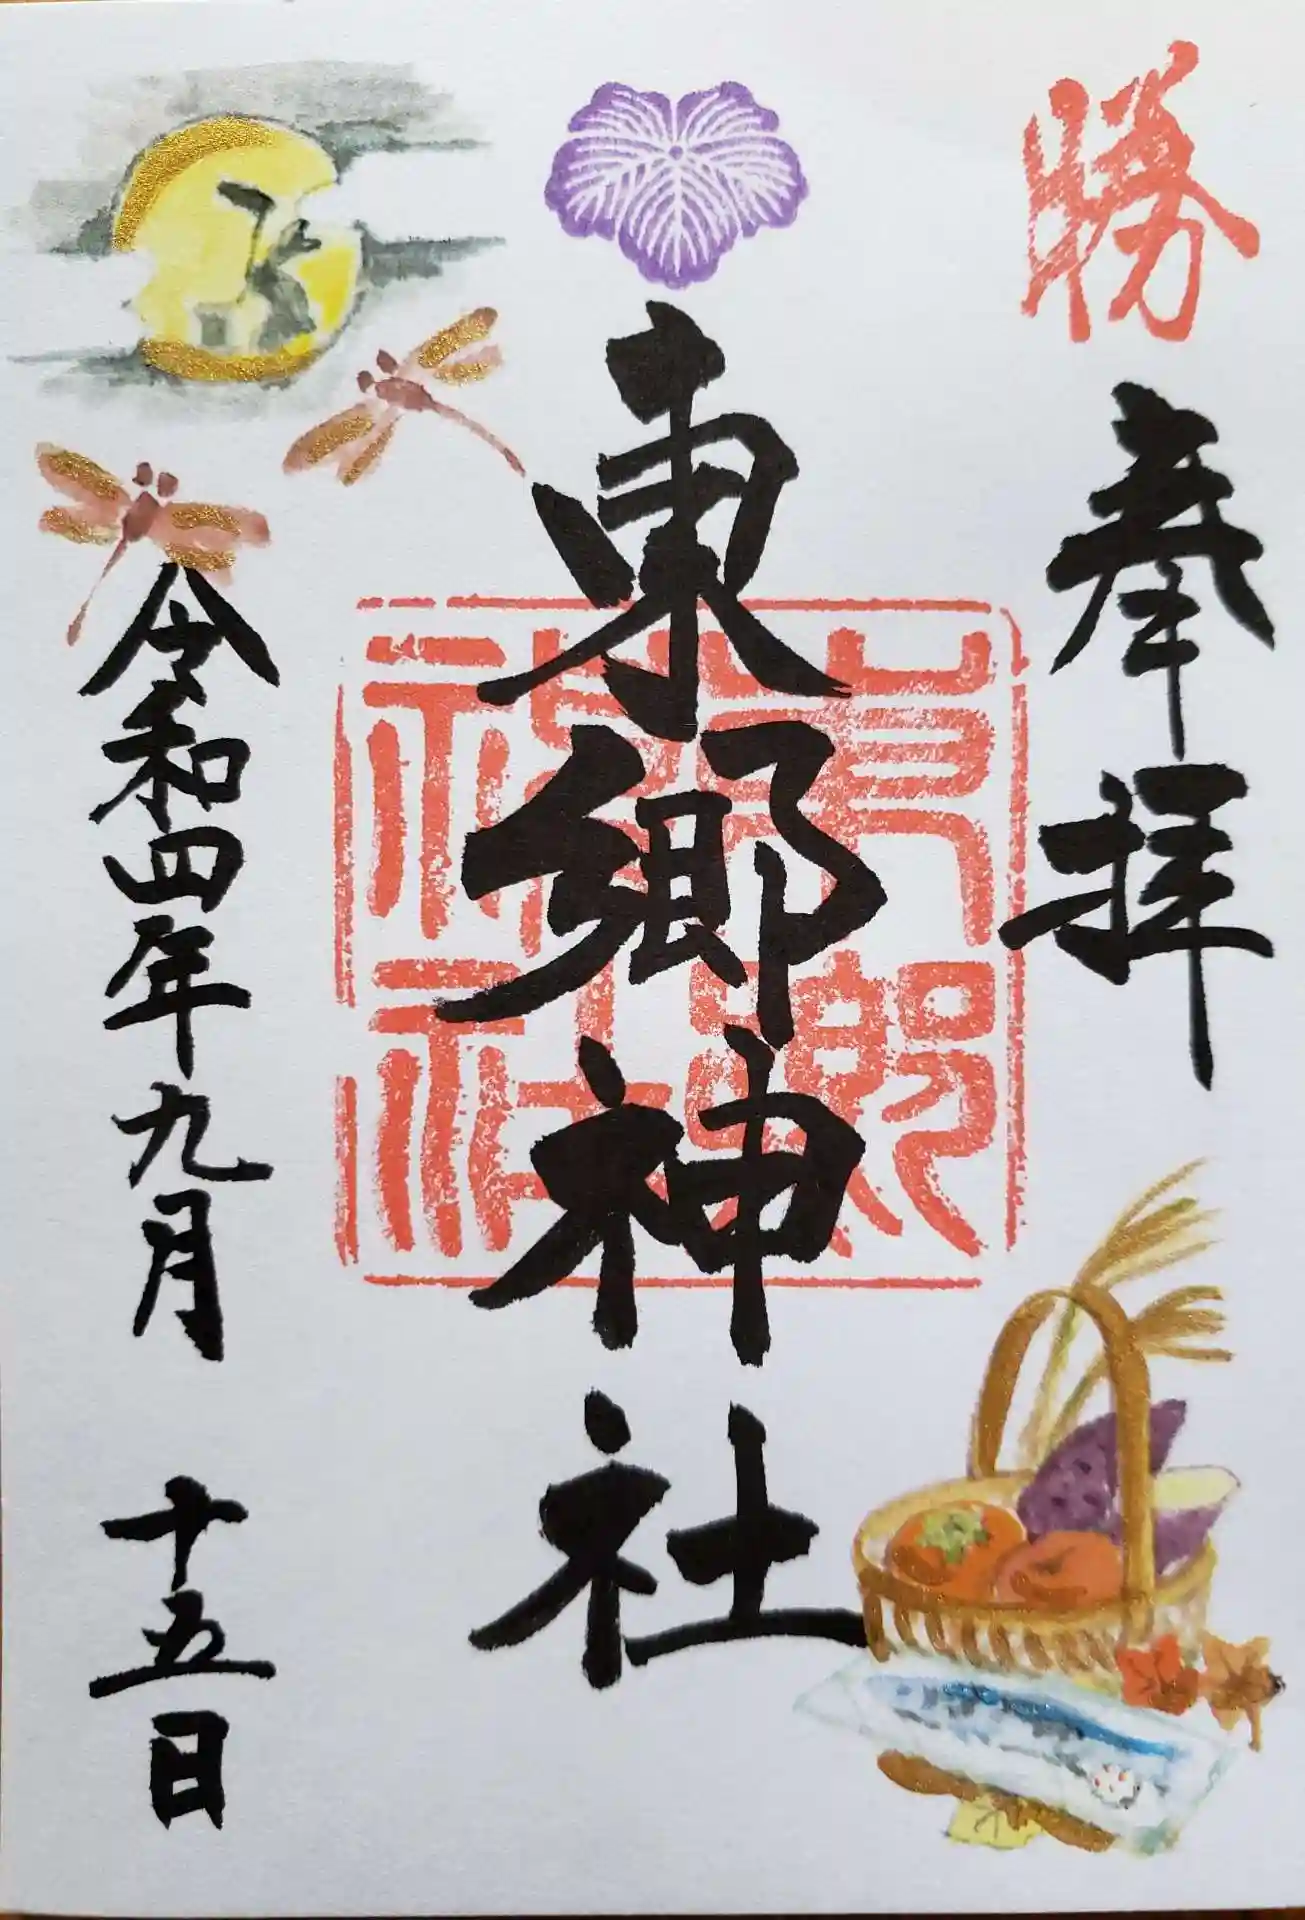 勝
奉拝
東郷神社
東郷神社
令和四年九月十五日